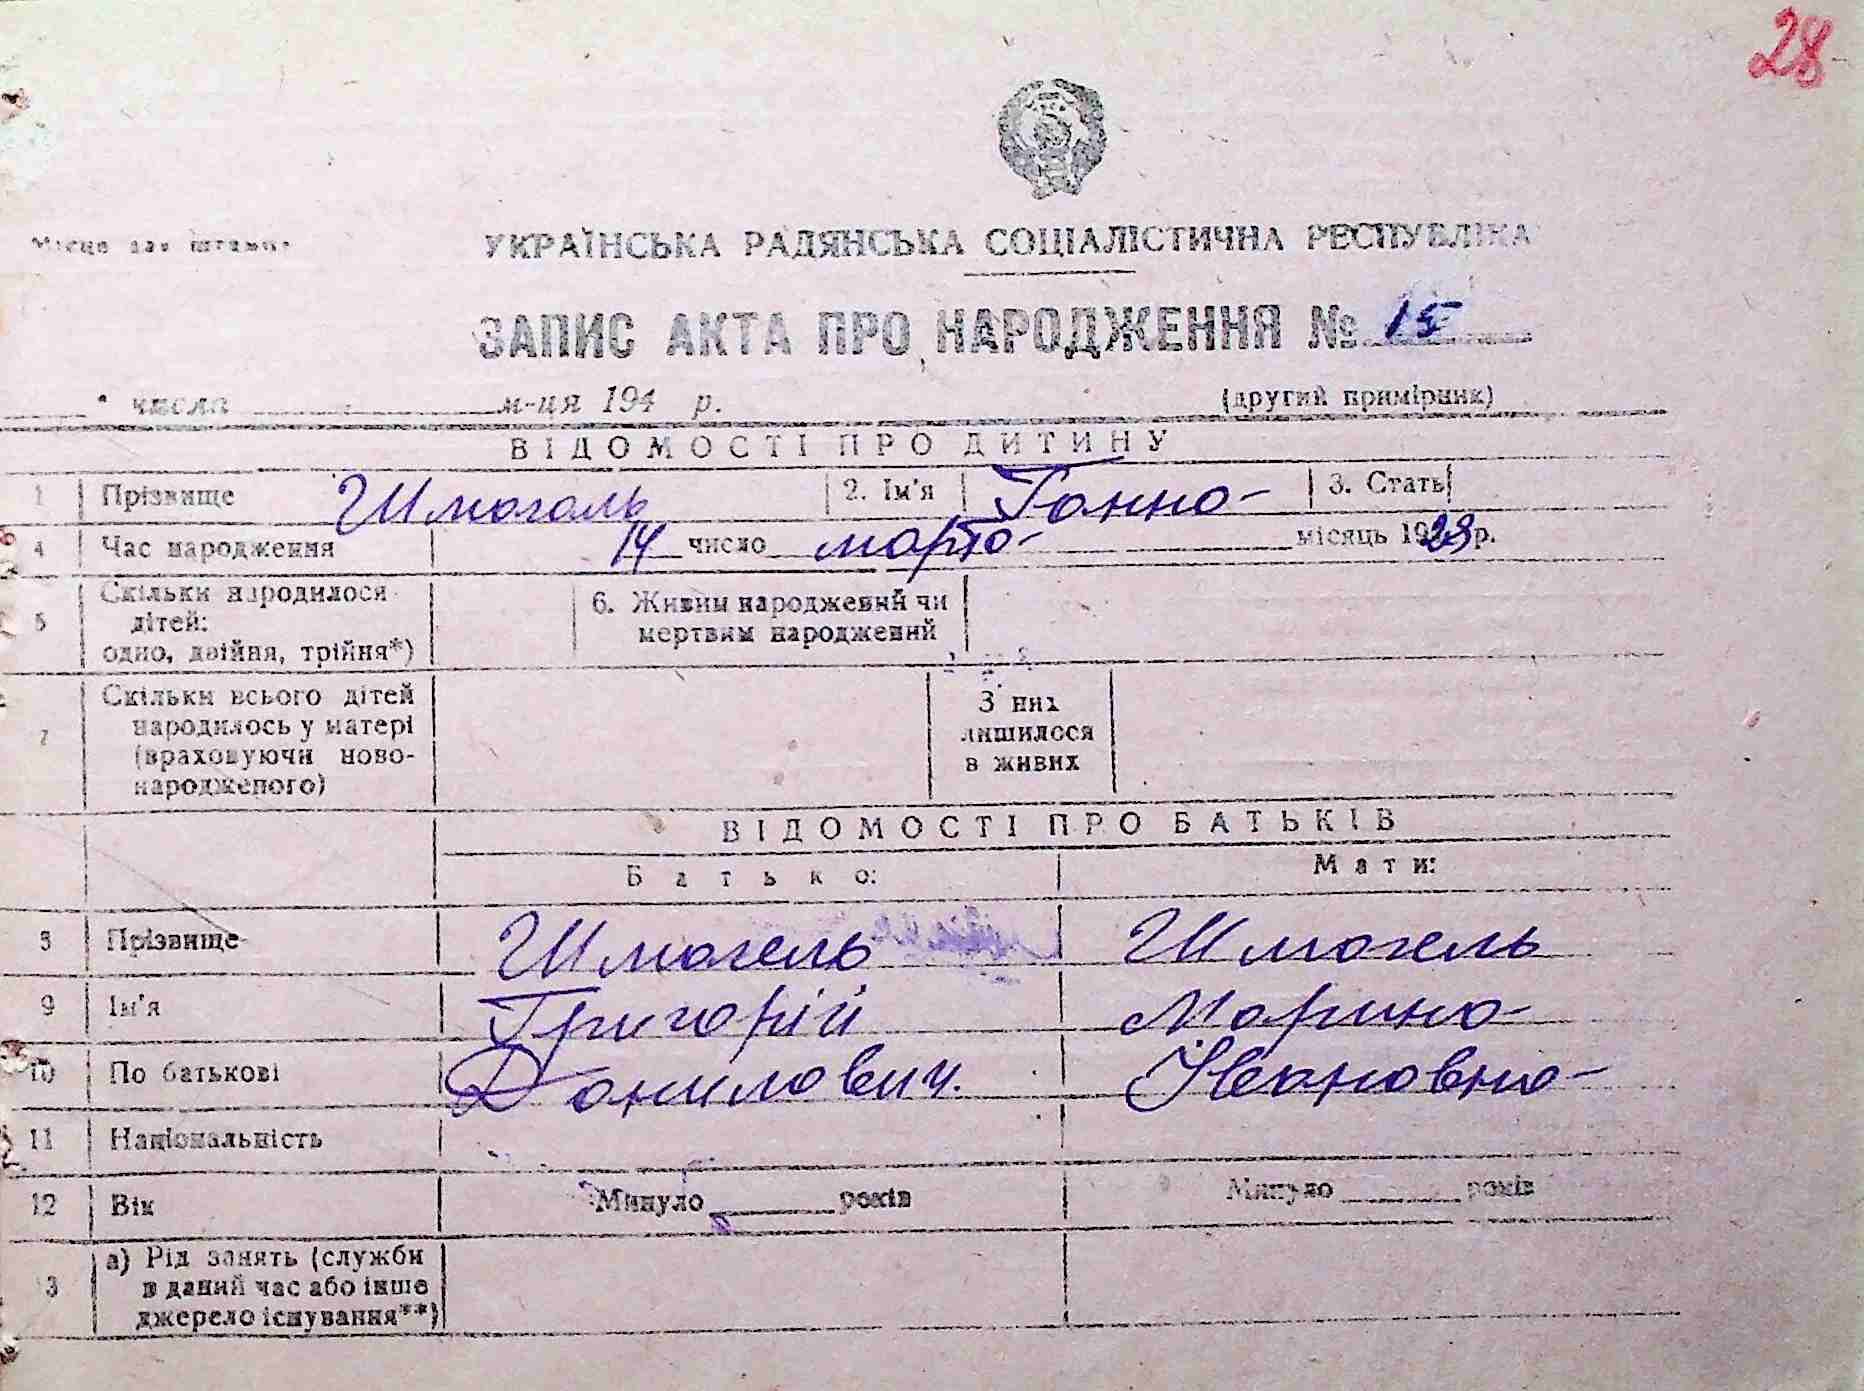 28
Місце для штампу
УКРАЇНСЬКА РАДЯНСЬКА СОЦІАЛІСТИЧНА РЕСПУБЛІКА
ЗАПИС АКТА ПРО НАРОДЖЕННЯ № 15
числа м-ця 194 р. (другий примірник)
ВІДОМОСТІ ПРО ДИТИНУ
1 Прізвище Шмогель 2. Ім'я Ганна 3. Стать
4 Час народження 14 число марта місяць 1923 р.
5 Скільки народилося дітей: одно, двійня, трійня*) 6. Живим народжений чи мертвим народжений
7 Скільки всього дітей народилось у матері (враховуючи новонародженого) З них лишилося в живих
ВІДОМОСТІ ПРО БАТЬКІВ
Батько: Мати:
8 Прізвище Шмогель Шмогель
9 Ім'я Григорій Марина
10 По батькові Данилович. Ивановна
11 Національність
12 Вік Минуло років Минуло років
13 а) Рід занять (служби в даний час або інше джерело існування**)